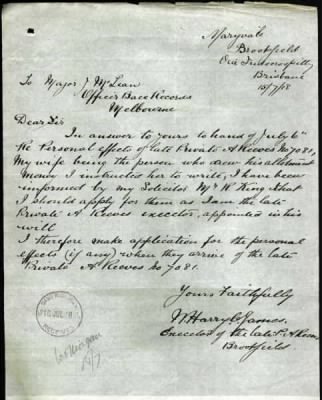 Maryvale
Brookfield
Via Indooroopilly
Brisbane
15/7/18
To Major J McLean
Officer Base Records
Melbourne
Dear Sir
In answer to yours to hand of July 6th
Re Personal effects of late Private A Reeves No 7081,
My wife being the person who drew his allotment
Money I instructed her to write, I have been
informed by my Solicitor Mr R King that
I should apply for them as I am the late
Private A Reeves executor, appointed in his
will.
I therefore make application for the personal
effects (if any) when they arrive of the late
Private A Reeves No 7081.
Yours Faithfully
Harry James,
Executor of the late P. A Reeves,
Brookfield.
JUL
RECEIVED